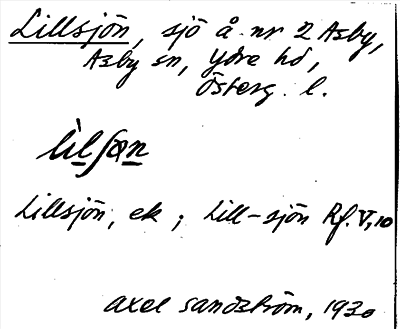 Lillsjön, sjö å nr 2 Asby,
Asby sn, Ydre hd,
Österg. l.
lìlʃøn
Lillsjön, ek ; Lill-sjön Rf. V, 10
Axel Sandström, 1930